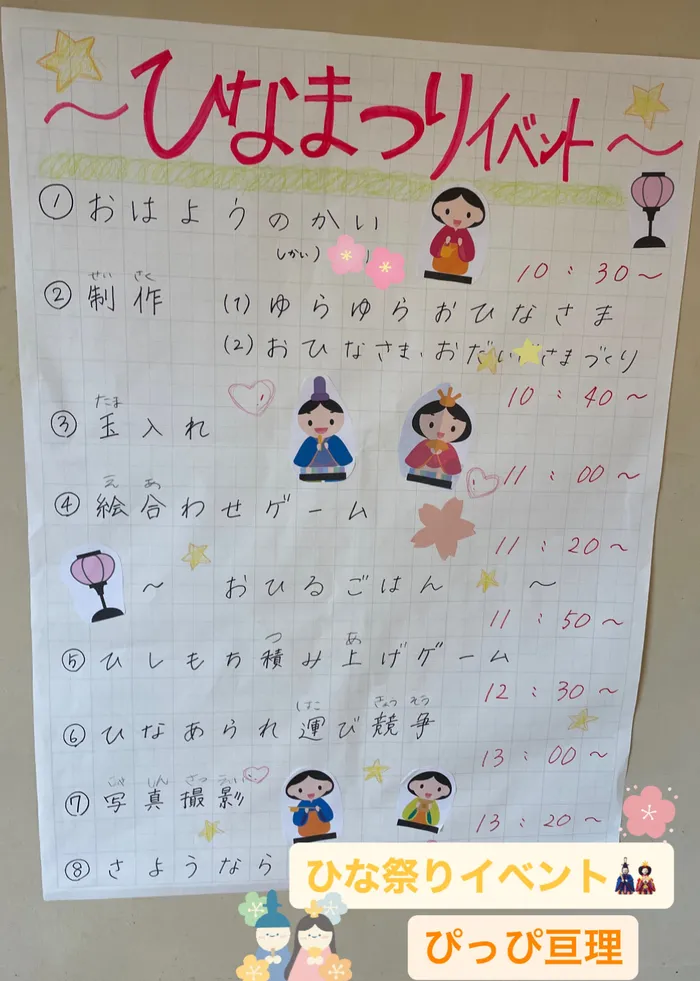 〜ひなまつりイベント〜
① おはようのかい
しかい)
10:30〜
せい さく
② 制作 (1) ゆらゆらおひなさま
(2) おひなさま、おだいさまづくり
10:40〜
たま
③ 玉入れ
11:00〜
え あ
④ 絵合わせゲーム
11:20〜
〜 おひるごはん 〜
11:50〜
つ あ
⑤ ひしもち積み上げゲーム
12:30〜
はこ きょう そう
⑥ ひなあられ運び競争
13:00〜
しゃ しん さつ えい
⑦ 写真撮影
13:20〜
⑧ さようなら
ひな祭りイベント🎎
ぴっぴ亘理